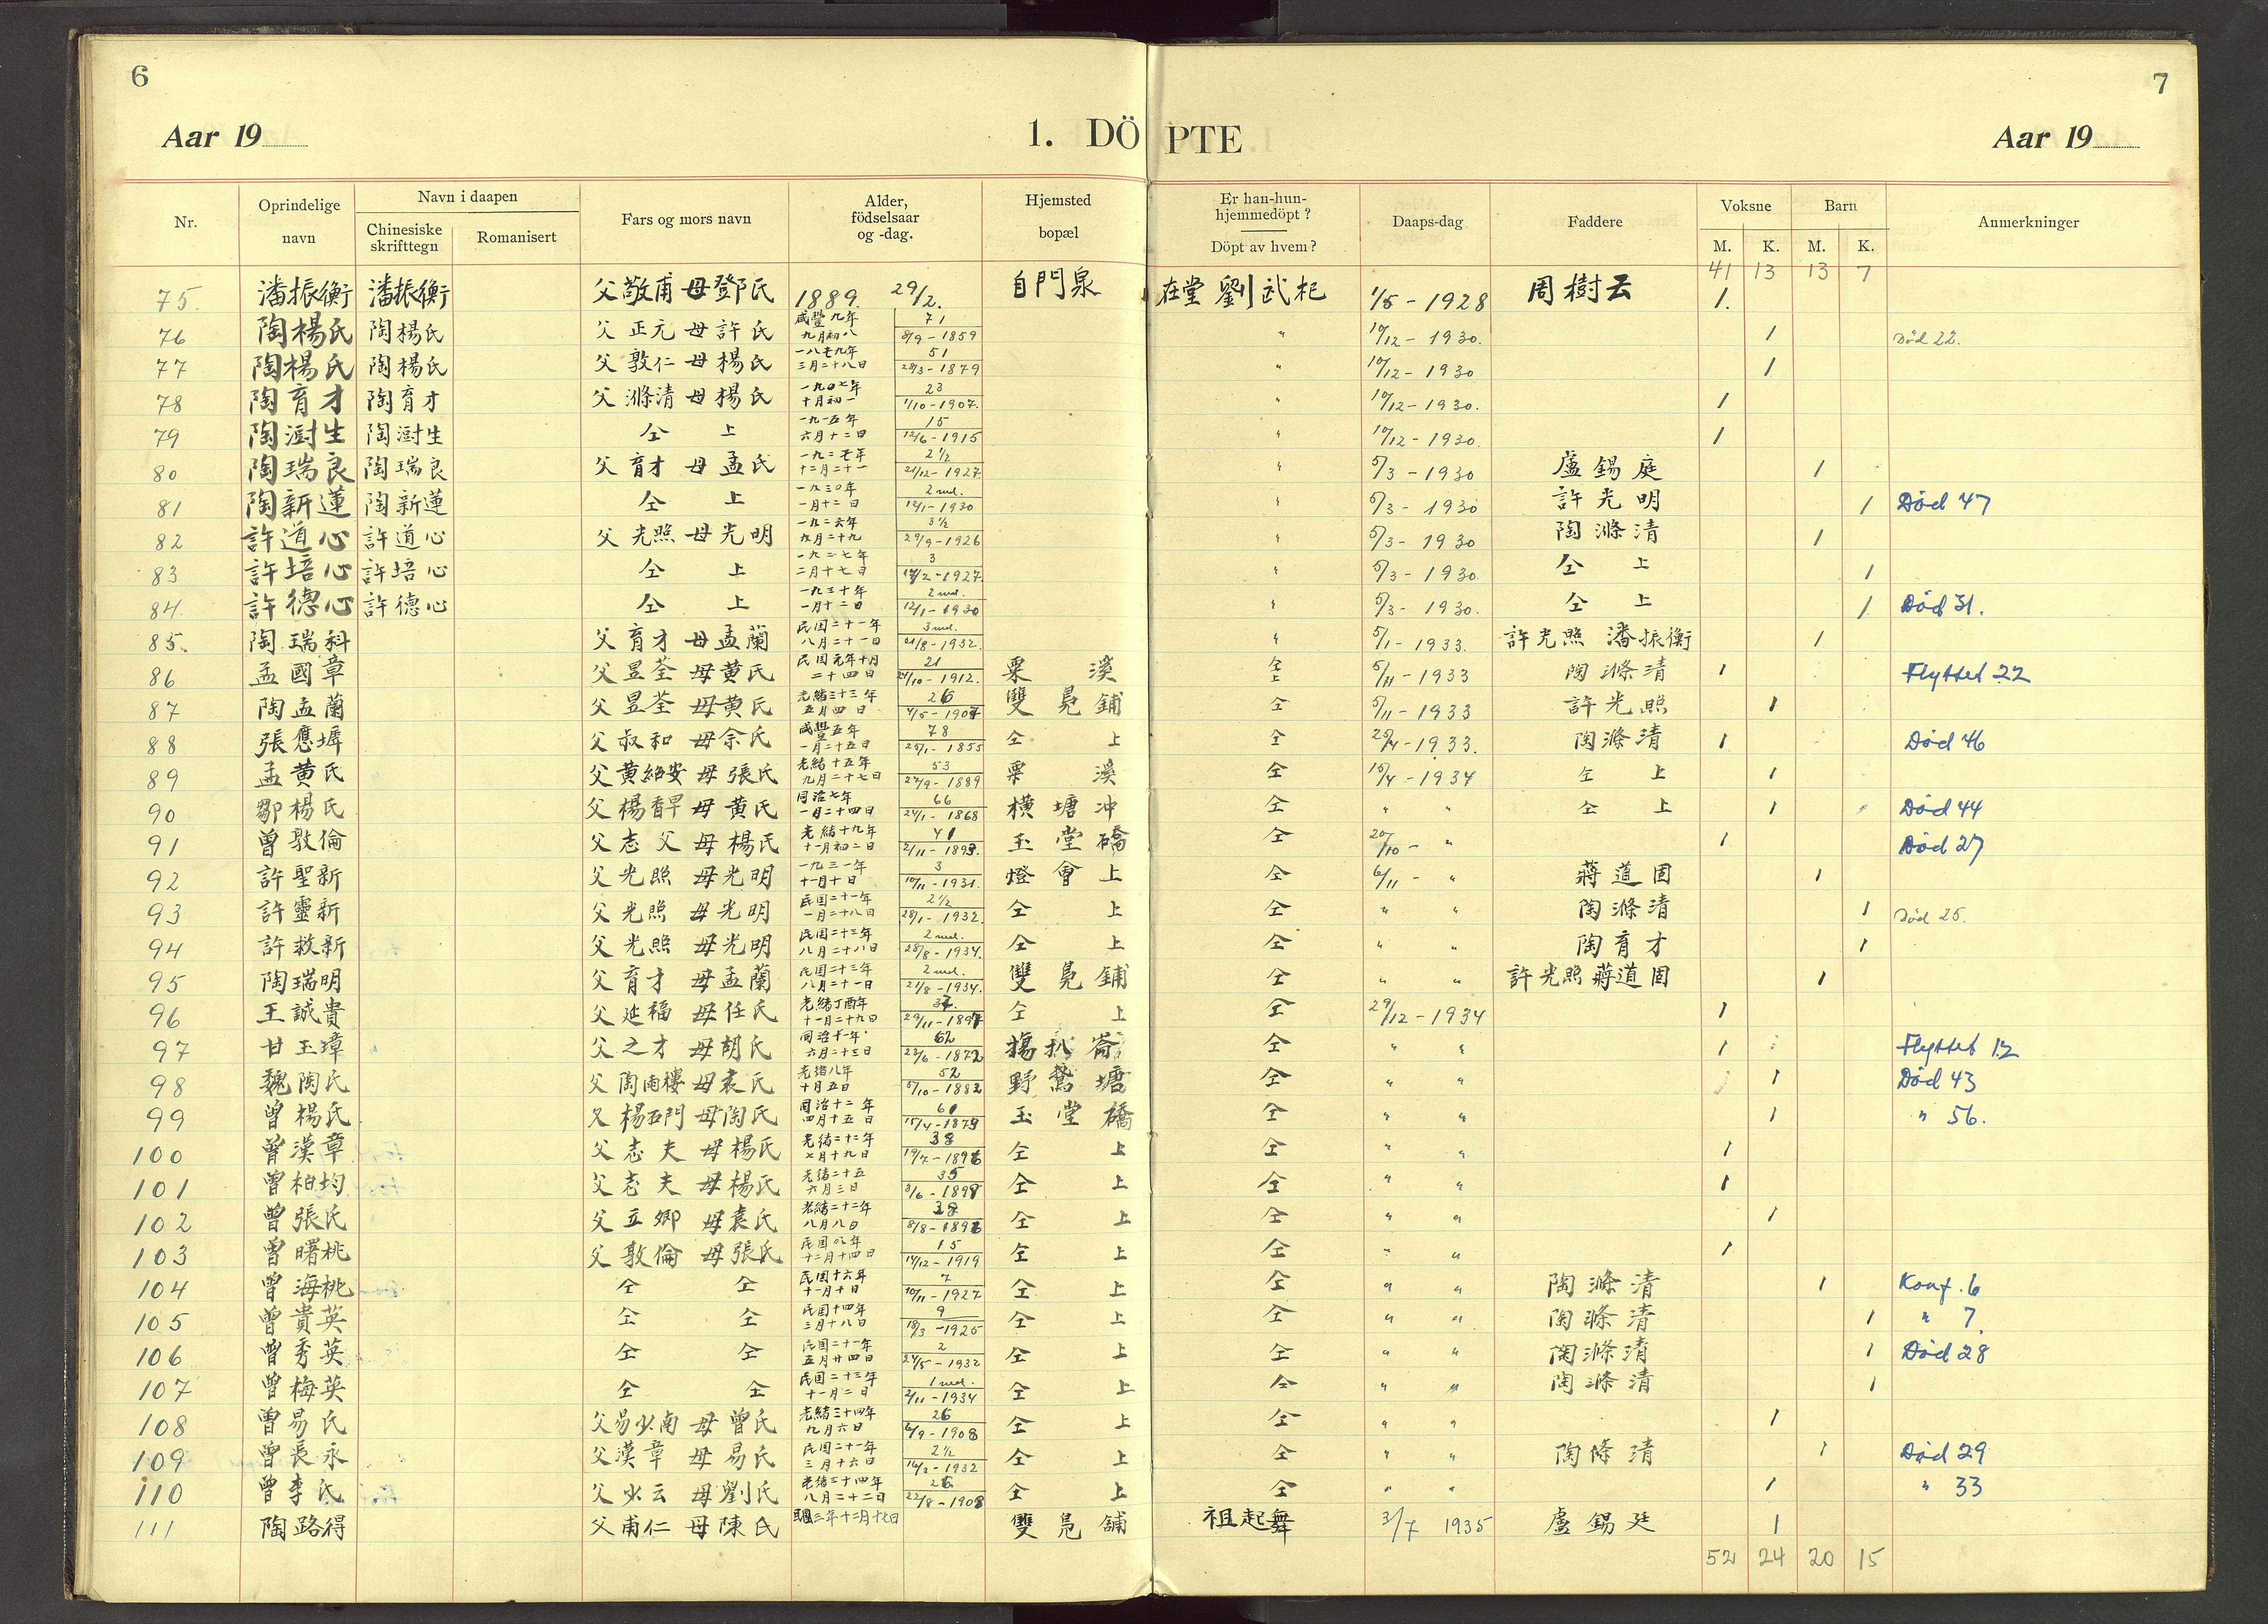 6
7
Aar 19
1. DÖPTE
Aar 19
Nr. Oprindelige navn Navn i daapen Chinesiske skrifttegn Romanisert Fars og mors navn Alder, födselsaar og -dag. Hjemsted bopæl Er han-hun-hjemmedöpt? Döpt av hvem? Daaps-dag Faddere Voksne M. K. Barn M. K. Anmerkninger
41 13 13 7
75. 潘振衡 潘振衡 父敬甫 母鄧氏 1889. 29/2. 自門泉 在堂 劉武杞 1/5-1928 周樹云 1.
76 陶楊氏 陶楊氏 父正元 母許氏 咸豐九年 九月初八 71 8/9-1859 " 10/12-1930. 1 Död 22.
77 陶楊氏 陶楊氏 父敦仁 母楊氏 一八七九年 三月二十八日 51 28/3-1879 " 10/12-1930 1
78 陶育才 陶育才 父滌清 母楊氏 一九〇七年 十月初一 23 1/10-1907. " 10/12-1930. 1
79 陶澍生 陶澍生 仝上 一九一五年 六月十二日 15 12/6-1915 " 10/12-1930. 1
80 陶瑞良 陶瑞良 父育才 母孟氏 一九二七年 十二月二十一 2½ 21/12-1927. " 5/3-1930 盧錫庭 1
81 陶新蓮 陶新蓮 仝上 一九三〇年 一月十二日 2 md. 12/1-1930 " 5/3-1930 許光明 1 Död 47
82 許道心 許道心 父光照 母光明 一九二六年 九月二十九 3½ 29/9-1926 " 5/3-1930 陶滌清 1
83 許培心 許培心 仝上 一九二七年 二月十七日 3 17/2-1927. " 5/3-1930. 仝上 1
84. 許德心 許德心 仝上 一九三十年 一月十二日 2 md. 12/1-1930 " 5/3-1930. 仝上 1 Död 31.
85. 陶瑞科 父育才 母孟蘭 民国二十一年 八月二十一日 3 md. 21/8-1932. " 5/1-1933. 許光照 潘振衡 1
86 孟國章 父昱荃 母黄氏 民国元年十月 二十四日 21 24/10-1912. 粟溪 仝上 5/11-1933 陶滌清 1 Flyttet 22
87 陶孟蘭 父昱荃 母黄氏 光緒三十三年 五月四日 26 4/5-1907 雙凫鋪 仝 5/11-1933 許光照 1
88 張應墀 父叔和 母余氏 咸豐五年 一月二十五日 78 25/1-1855 仝上 仝 -1933. 陶滌清 1 Död 46
89 孟黄氏 父黄紹安 母張氏 光緒十五年 九月二十七日 53 27/9-1889 粟溪 仝 15/4-1934 仝上 1
90 鄒楊氏 父楊香 母黄氏 同治七年 一月二十四日 66 24/1-1868 横塘冲 仝 " " 仝上 1 Död 44
91 曾敦倫 父志父 母楊氏 光緒十九年 十一月初二日 41 2/11-1893. 玉堂磽 仝 20/10- " 1 Död 27
92 許聖新 父光照 母光明 一九三一年 十一月十日 3 10/11-1931. 燈會上 仝 6/11- " 蔣道固 1
93 許靈新 父光照 母光明 民国二十一年 一月二十八日 2½ 28/1-1932. 仝上 仝 " " 陶滌清 1 Död 25.
94 許救新 父光照 母光明 民国二十三年 八月二十八日 2 md. 28/8-1934. 仝上 仝 " " 陶育才 1
95 陶瑞明 父育才 母孟蘭 民国二十三年 八月二十一日 2 md. 21/8-1934. 雙凫鋪 仝 " " 許光照 蔣道固 1
96 王誠貴 父延福 母任氏 光緒丁酉年 十一月二十九日 37. 29/11-1897 仝上 仝 29/12-1934 1
97 甘玉璋 父之才 母胡氏 同治十一年 六月二十三日 62 23/6-1872 扒 仝 " " 1 Flyttet 12
98 魏陶氏 父陶雨樓 母袁氏 光緒八年 十月五日 52 5/10-1882 野鶩塘 仝 " " 1 Död 43
99 曾楊氏 父楊石門 母陶氏 同治十二年 四月十五日 61 15/4-1873 玉堂磽 仝 " " 1 " 56.
100 曾漢章 父志夫 母楊氏 光緒二十二年 七月十九日 38 19/7-1896 仝上 仝 " " 1
101 曾柏均 父志夫 母楊氏 光緒二十五 六月三日 35 3/6-1899 仝上 仝 " " 1
102 曾張氏 父立卿 母袁氏 光緒二十二年 八月八日 38 8/8-1896 仝上 仝 " " 1
103 曾曙桃 父敦倫 母張氏 民国八年 十二月十四日 15 14/12-1919 仝上 仝 " " 1
104 曾海桃 仝仝 民国十六年 十一月十日 7 10/11-1927 仝上 仝 " " 陶滌清 1 Konf. 6
105 曾貴英 仝仝 民国十四年 三月十八日 9 18/3-1925 仝上 仝 " " 陶滌清 1 " 7.
106 曾秀英 仝仝 民国二十一年 五月廿四日 2 24/5-1932 仝上 仝 " " 陶滌清 1 Död 28
107 曾梅英 仝仝 民国二十三年 十一月二日 1 md. 2/11-1934 仝上 仝 " " 陶滌清 1
108 曾易氏 父易少南 母曾氏 光緒三十四年 九月六日 26 6/9-1908 仝上 仝 " " 1
109 曾長永 父漢章 母易氏 民国二十一年 三月十六日 2½ 16/3-1932 仝上 仝 " " 陶滌清 1 Död 29
110 曾李氏 父少云 母劉氏 光緒三十四年 八月二十二日 26 22/8-1908 仝上 仝 " " 1 " 33
111 陶路得 父甫仁 母陳氏 民國三年十二月十七日 雙凫舖 祖起舞 3/7 1935 盧錫廷 1
52 24 20 15